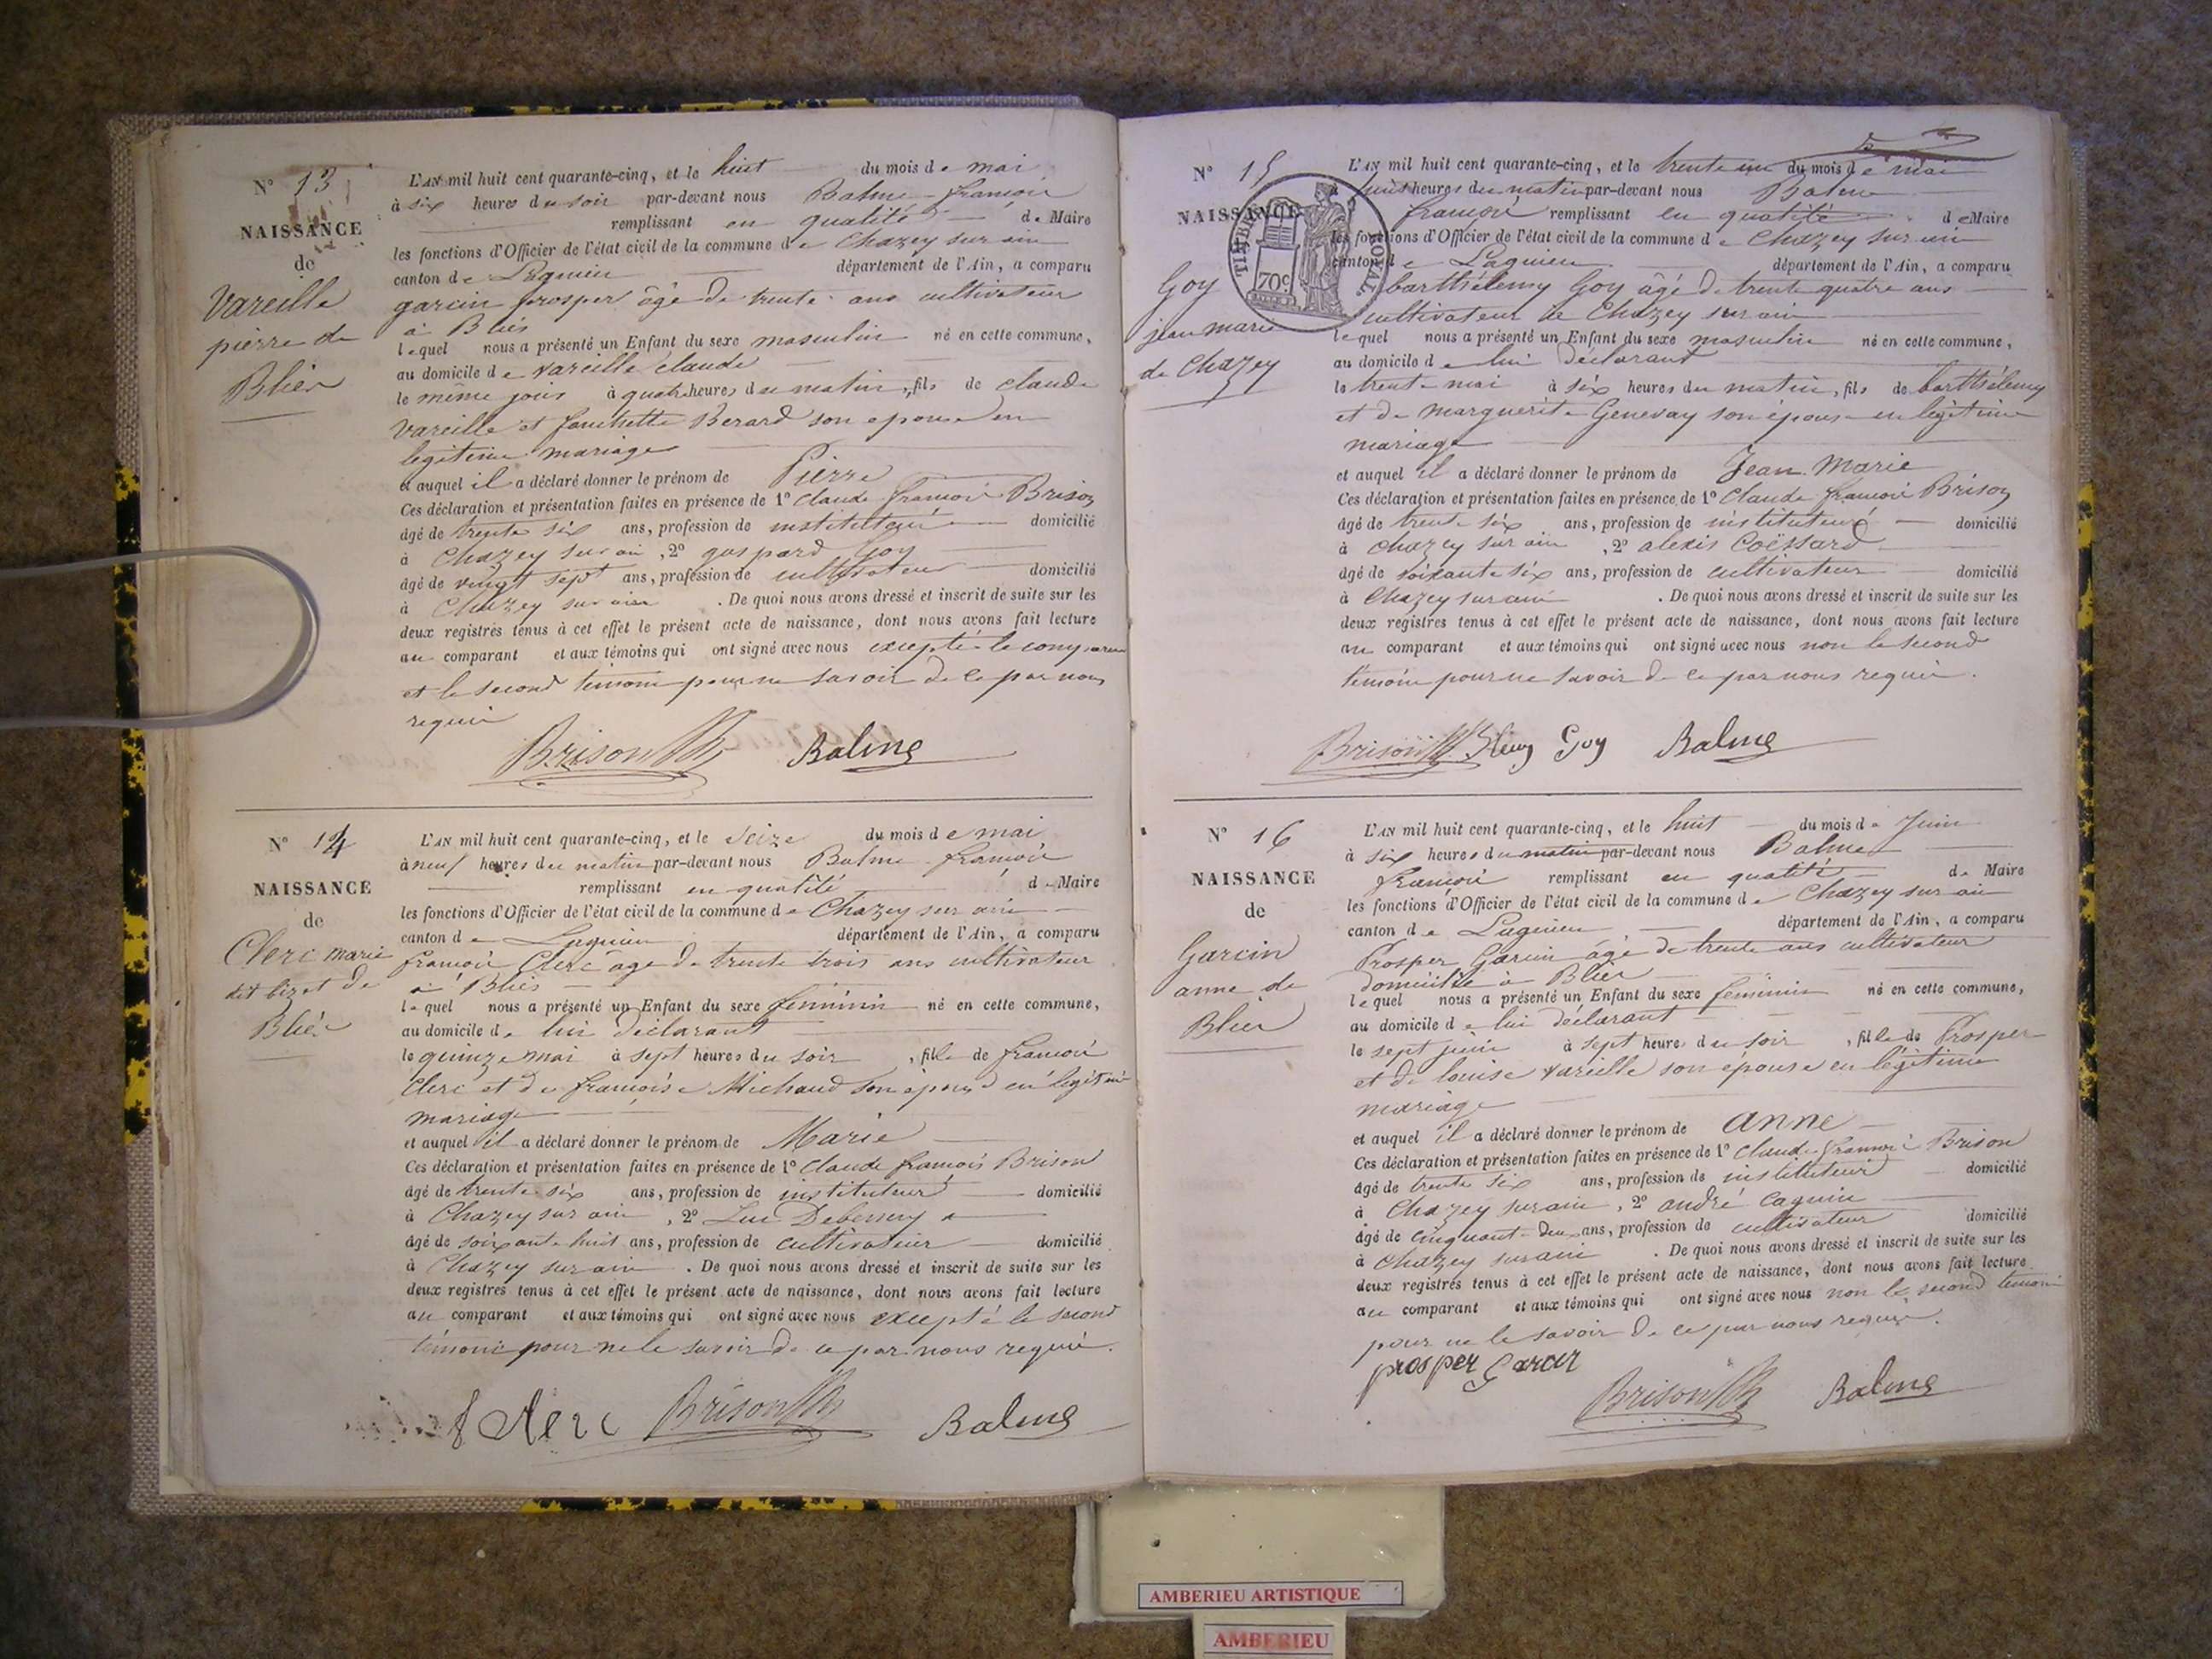 N° 13
NAISSANCE
de
Vareille
pierre de
Blies
L'AN mil huit cent quarante-cinq, et le huit du mois de mai
à six heures du soir par-devant nous Balme françois
remplissant en qualité de Maire
les fonctions d'Officier de l'état civil de la commune de Chazey sur ain
canton de Lagnieu département de l'Ain, a comparu
garcin prosper âgé de trente ans cultivateur
à Bliés
lequel nous a présenté un Enfant du sexe masculin né en cette commune,
au domicile de vareille claude
le même jour à quatre heures du matin, fils de claude
Vareille et fanchette Berard son epouse en
legitime mariage
et auquel il a déclaré donner le prénom de Pierre
Ces déclaration et présentation faites en présence de 1° Claude françois Brison
âgé de trente six ans, profession de instituteur domicilié
à Chazey sur ain, 2° gaspard Goy
âgé de vingt sept ans, profession de cultivateur domicilié
à Chazey sur ain. De quoi nous avons dressé et inscrit de suite sur les
deux registres tenus à cet effet le présent acte de naissance, dont nous avons fait lecture
au comparant et aux témoins qui ont signé avec nous excepté le comparant
et le second temoin pour ne savoir de ce par nous
requis
Brison Balme
N° 14
NAISSANCE
de
Clerc marie
dit bizet de
Bliés
L'AN mil huit cent quarante-cinq, et le Seize du mois de mai
à neuf heures du matin par-devant nous Balme françois
remplissant en qualité de Maire
les fonctions d'Officier de l'état civil de la commune de Chazey sur ain
canton de Lagnieu département de l'Ain, a comparu
françois Clerc âgé de trente trois ans cultivateur
à Bliés
lequel nous a présenté un Enfant du sexe féminin né en cette commune,
au domicile de lui déclarant
le quinze mai à sept heures du soir, fille de françois
Clerc et de françoise Michaud son épouse en légitime
mariage
et auquel il a déclaré donner le prénom de Marie
Ces déclaration et présentation faites en présence de 1° Claude françois Brison
âgé de trente six ans, profession de instituteur domicilié
à Chazey sur ain, 2° Luc Debeney
âgé de soixante huit ans, profession de cultivateur domicilié
à Chazey sur ain. De quoi nous avons dressé et inscrit de suite sur les
deux registres tenus à cet effet le présent acte de naissance, dont nous avons fait lecture
au comparant et aux témoins qui ont signé avec nous excepté le second
témoin pour ne le savoir de ce par nous requis.
f Clerc Brison Balme
N° 15
NAISSANCE
TIMBRE ROYAL
70c
Goy
jean marie
de Chazey
L'AN mil huit cent quarante-cinq, et le trente un du mois de mai
à huit heures du matin par-devant nous Balme
françois remplissant en qualité de Maire
les fonctions d'Officier de l'état civil de la commune de Chazey sur ain
canton de Lagnieu département de l'Ain, a comparu
barthélemy Goy âgé de trente quatre ans
cultivateur de Chazey sur ain
lequel nous a présenté un Enfant du sexe masculin né en cette commune,
au domicile de lui déclarant
le trente mai à six heures du matin, fils de barthélemy
et de marguerite Genevay son épouse en légitime
mariage
et auquel il a déclaré donner le prénom de Jean Marie
Ces déclaration et présentation faites en présence de 1° Claude françois Brison
âgé de trente six ans, profession de instituteur domicilié
à chazey sur ain, 2° alexis Coëssard
âgé de soixante six ans, profession de cultivateur domicilié
à Chazey sur ain. De quoi nous avons dressé et inscrit de suite sur les
deux registres tenus à cet effet le présent acte de naissance, dont nous avons fait lecture
au comparant et aux témoins qui ont signé avec nous non le second
témoin pour ne savoir de ce par nous requis.
Brison Goy Balme
N° 16
NAISSANCE
de
Garcin
anne de
Blies
L'AN mil huit cent quarante-cinq, et le huit du mois de Juin
à six heures du matin par-devant nous Balme
françois remplissant en qualité de Maire
les fonctions d'Officier de l'état civil de la commune de Chazey sur ain
canton de Lagnieu département de l'Ain, a comparu
Prosper Garcin âgé de trente ans cultivateur
domicilié à Blies
lequel nous a présenté un Enfant du sexe féminin né en cette commune,
au domicile de lui déclarant
le sept juin à sept heures du soir, fille de Prosper
et de louise vareille son épouse en légitime
mariage
et auquel il a déclaré donner le prénom de anne
Ces déclaration et présentation faites en présence de 1° Claude françois Brison
âgé de trente six ans, profession de instituteur domicilié
à Chazey sur ain, 2° andré Caguin
âgé de cinquante deux ans, profession de cultivateur domicilié
à Chazey sur ain. De quoi nous avons dressé et inscrit de suite sur les
deux registres tenus à cet effet le présent acte de naissance, dont nous avons fait lecture
au comparant et aux témoins qui ont signé avec nous non le second temoin
pour ne le savoir de ce par nous requis.
prosper Garcin
Brison Balme
AMBERIEU ARTISTIQUE
AMBERIEU